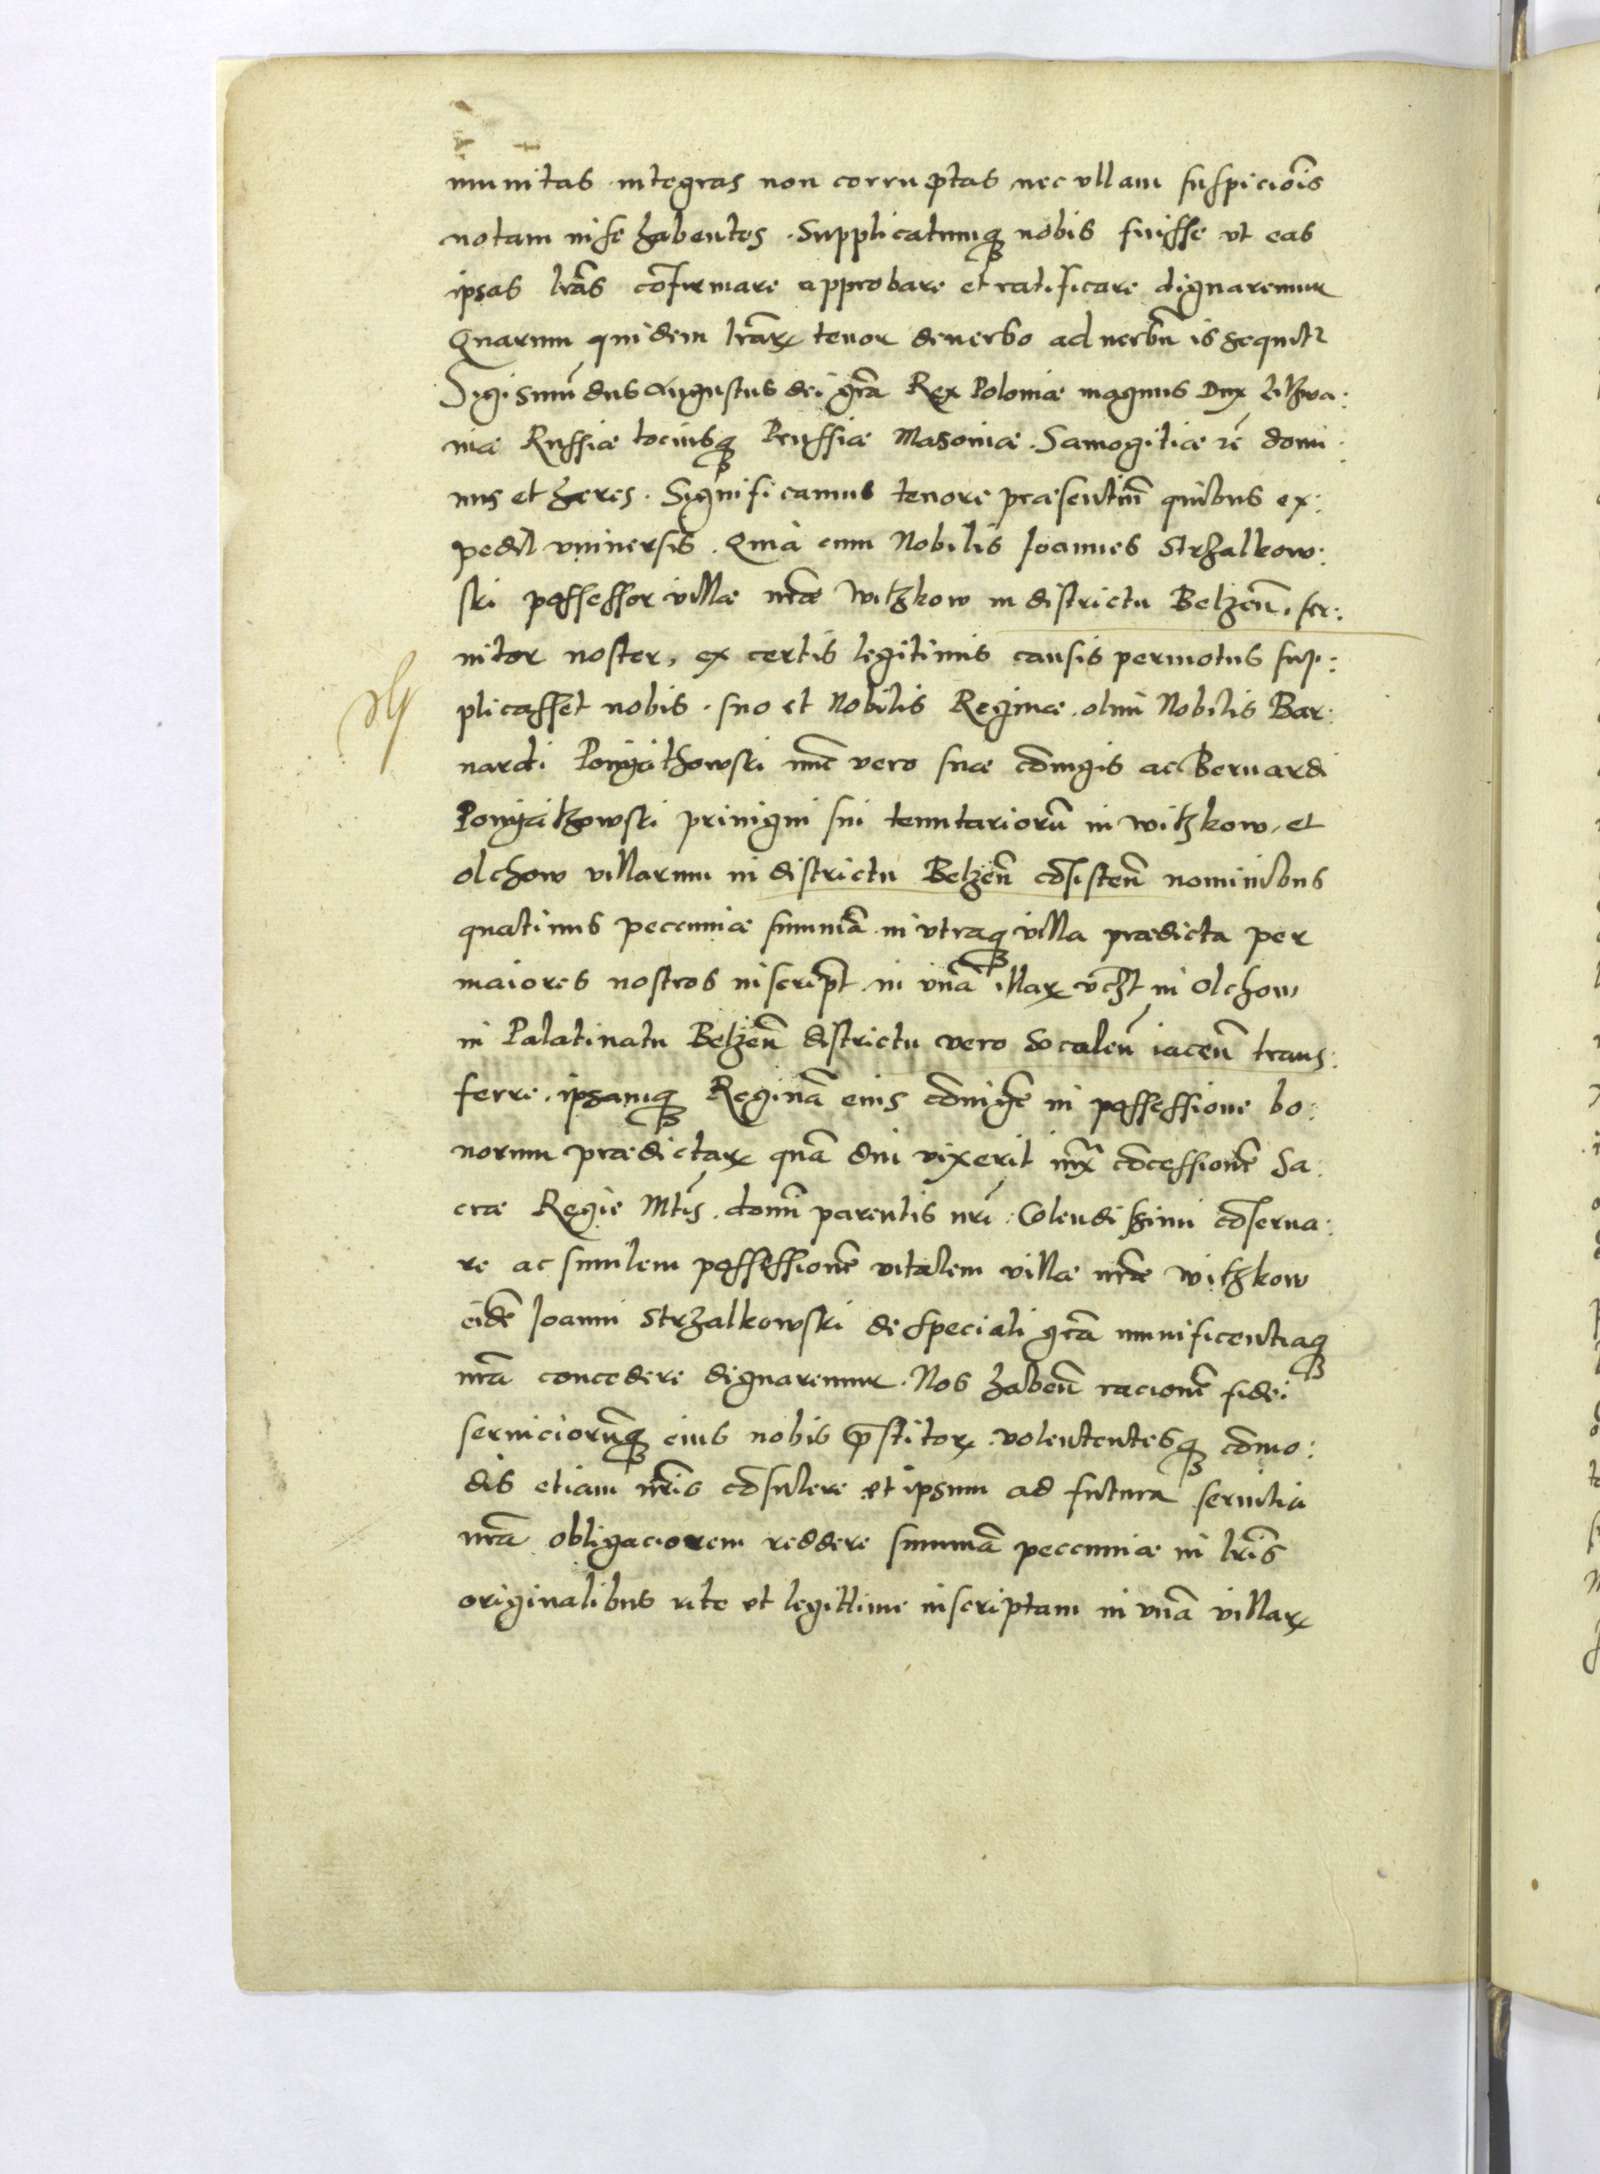 munitas integras non corruptas nec ullam suspiciõis
notam in se habentes. Supplicatumq₃ nobis fuisse ut eas
ipsas lr̃as cõfirmare approbare et ratificare dignaremur
Quarum quidem lr̃arꝝ tenor de verbo ad verbũ is sequitr
Sigismũdus Augustus dei gr̃a Rex Poloniæ magnus Dux Lithva:
niæ Russiæ tociusq₃ Prussiæ Masoviæ. Samogitiæ rẽ domi:
nus et hæres. Significamus tenore præsentiũ quibus ex:
pedit universis. Quia cum Nobilis Joannes Strzalkow:
ski possessor villæ nr̃æ Witzkow in districtu Belzeñ. ser:
vitor noster, ex certis legitimis causis permotus sup:
plicasset nobis. suo et Nobilis Reginæ. olim Nobilis Bar:
nardi Ponyathowski nũc vero suæ cõiugis ac Bernardi
Ponyatzowski privigni sui tenutariorũ in Witzkow, et
Olchow villarum in districtu Belzeñ cõsisteñ nominibus
quatinus peccuniæ summã in utraq₃ villa prædicta per
maiores nostros inscript̃. in vnã illarꝝ vc̃zt in Olchow
in Palatinatu Belzeñ districtu vero Socaleñ iaceñ trans:
ferre. ipsamq₃ Reginã eius cõiugẽ in possessione bo:
norum prædictarꝝ quã diu vixerit iux̃ cõcessionẽ Sa:
cræ Regiæ Mtis. domi parentis nr̃i. Colendissimi cõserva:
re ac similem possessionẽ vitalem villæ nr̃æ Witzkow
eidẽ Joanni Strzalkowski de speciali gr̃a munificentiaq₃
nr̃a concedere dignaremur. Nos habeñ racionẽ fidei
serviciorũq₃ eius nobis p̃stitorꝝ. volententesq₃ cõmo:
dis etiam nr̃is cõsulere et ipsum ad futura servitia
nr̃a obligaciorem reddere summã peccuniæ in lr̃is
originalibus rite et legittime inscriptam in vnã villarꝝ